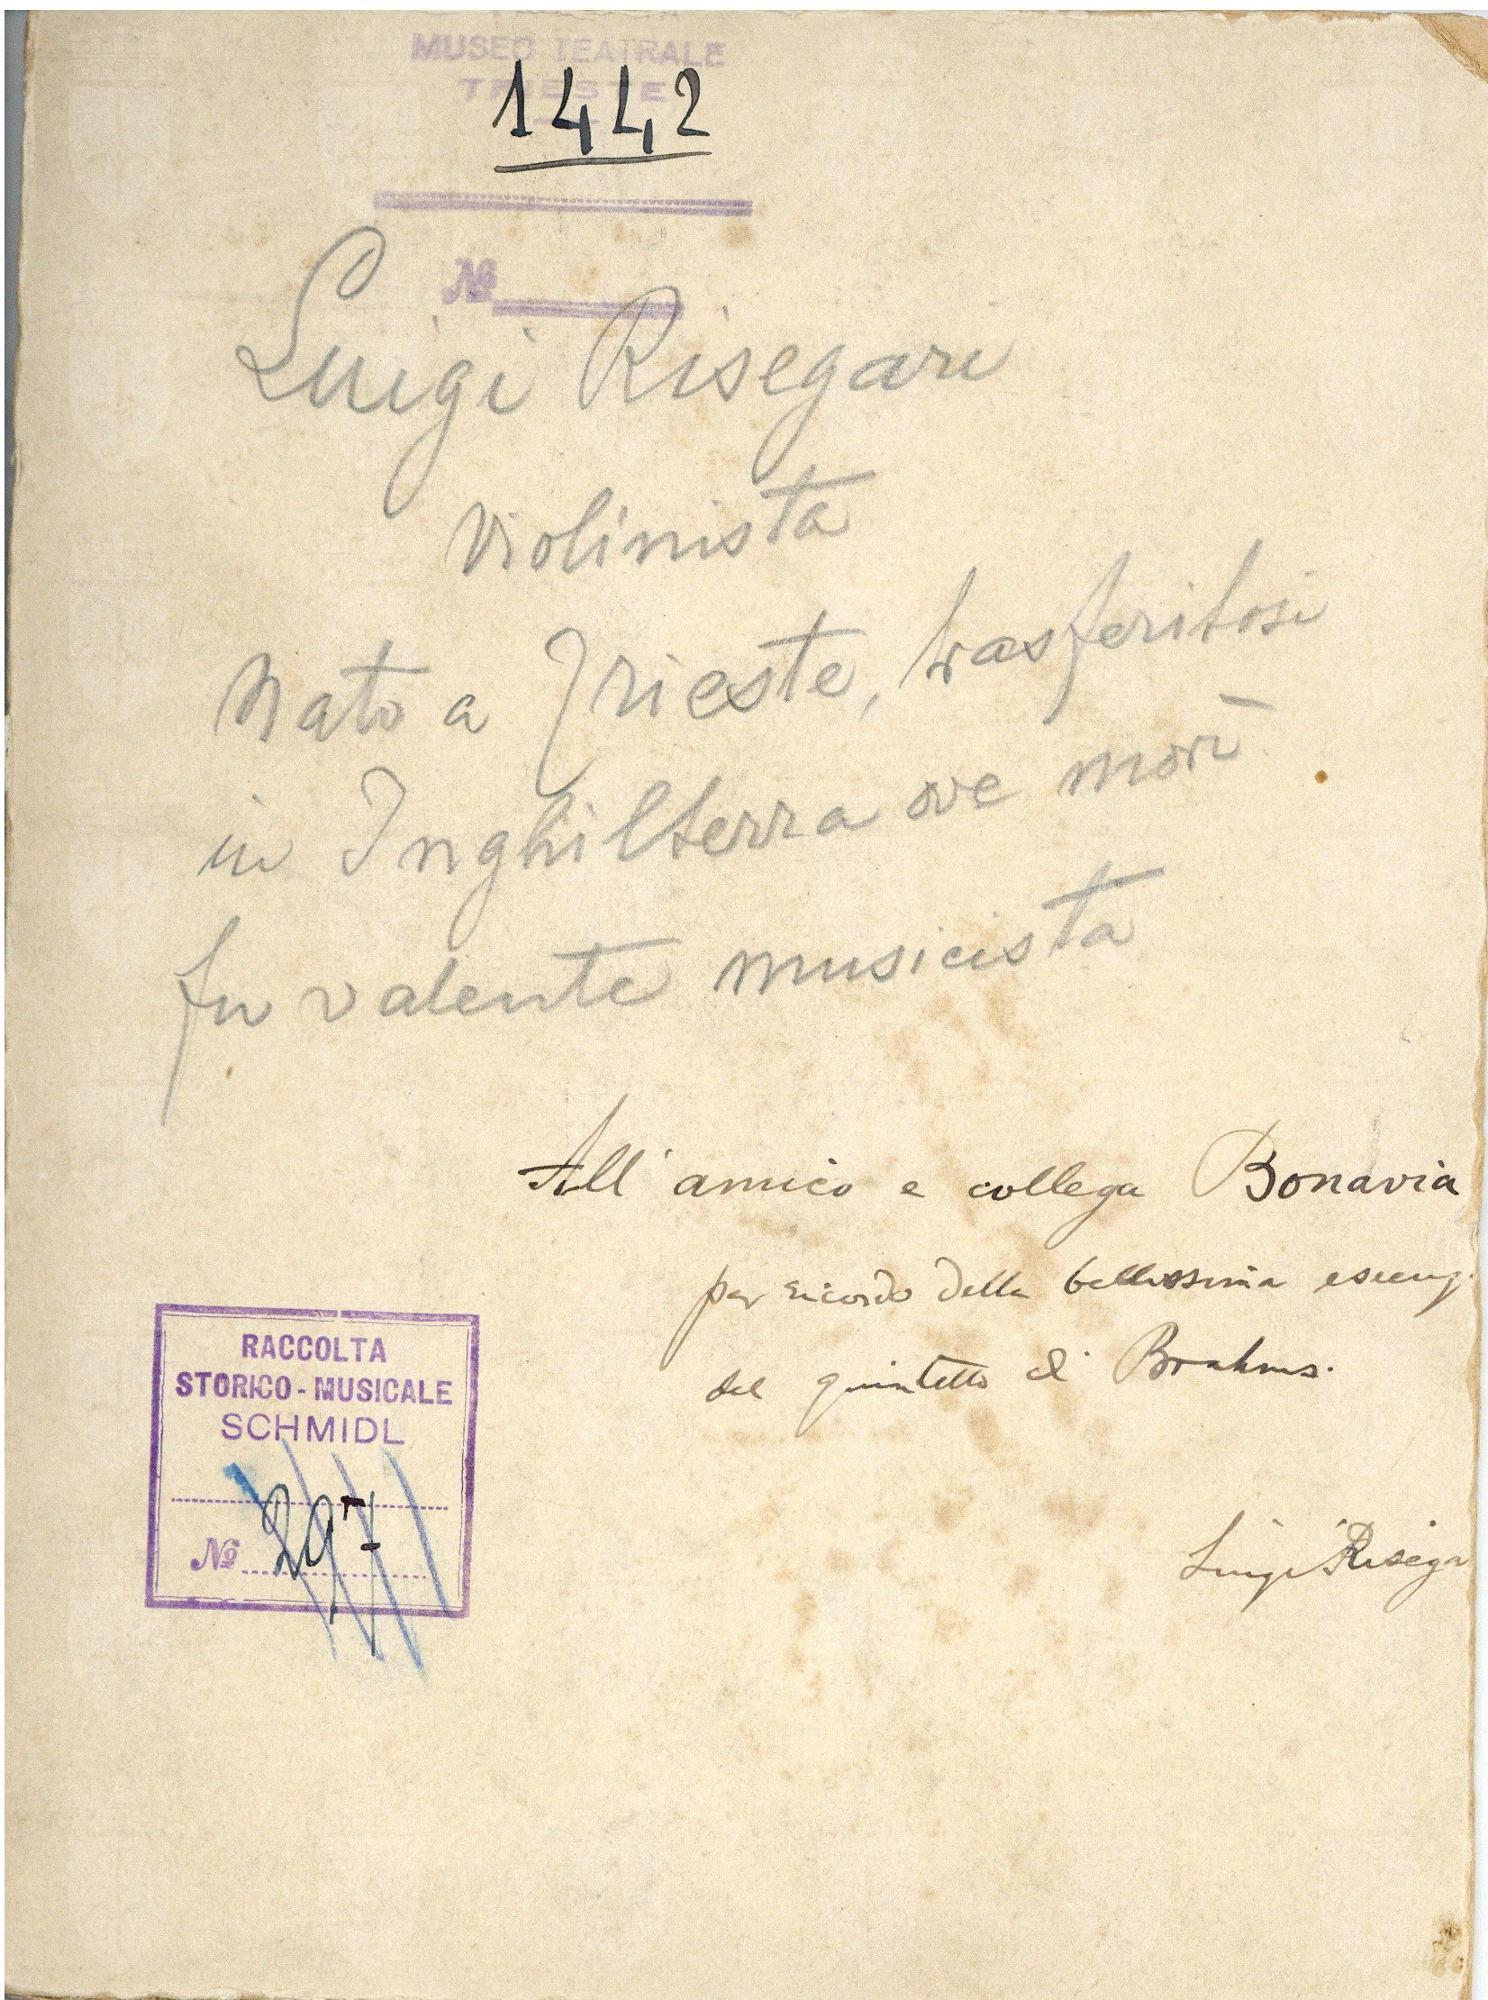 MUSEO TEATRALE
TRIESTE
1442
№
Luigi Risegari
violinista
nato a Trieste, trasferitosi
in Inghilterra ove morì
fu valente musicista
All' amico e collega Bonavia
per ricordo della bellissima
del quintetto di Brahms.
Luigi Risega
RACCOLTA
STORICO-MUSICALE
SCHMIDL
№ 297